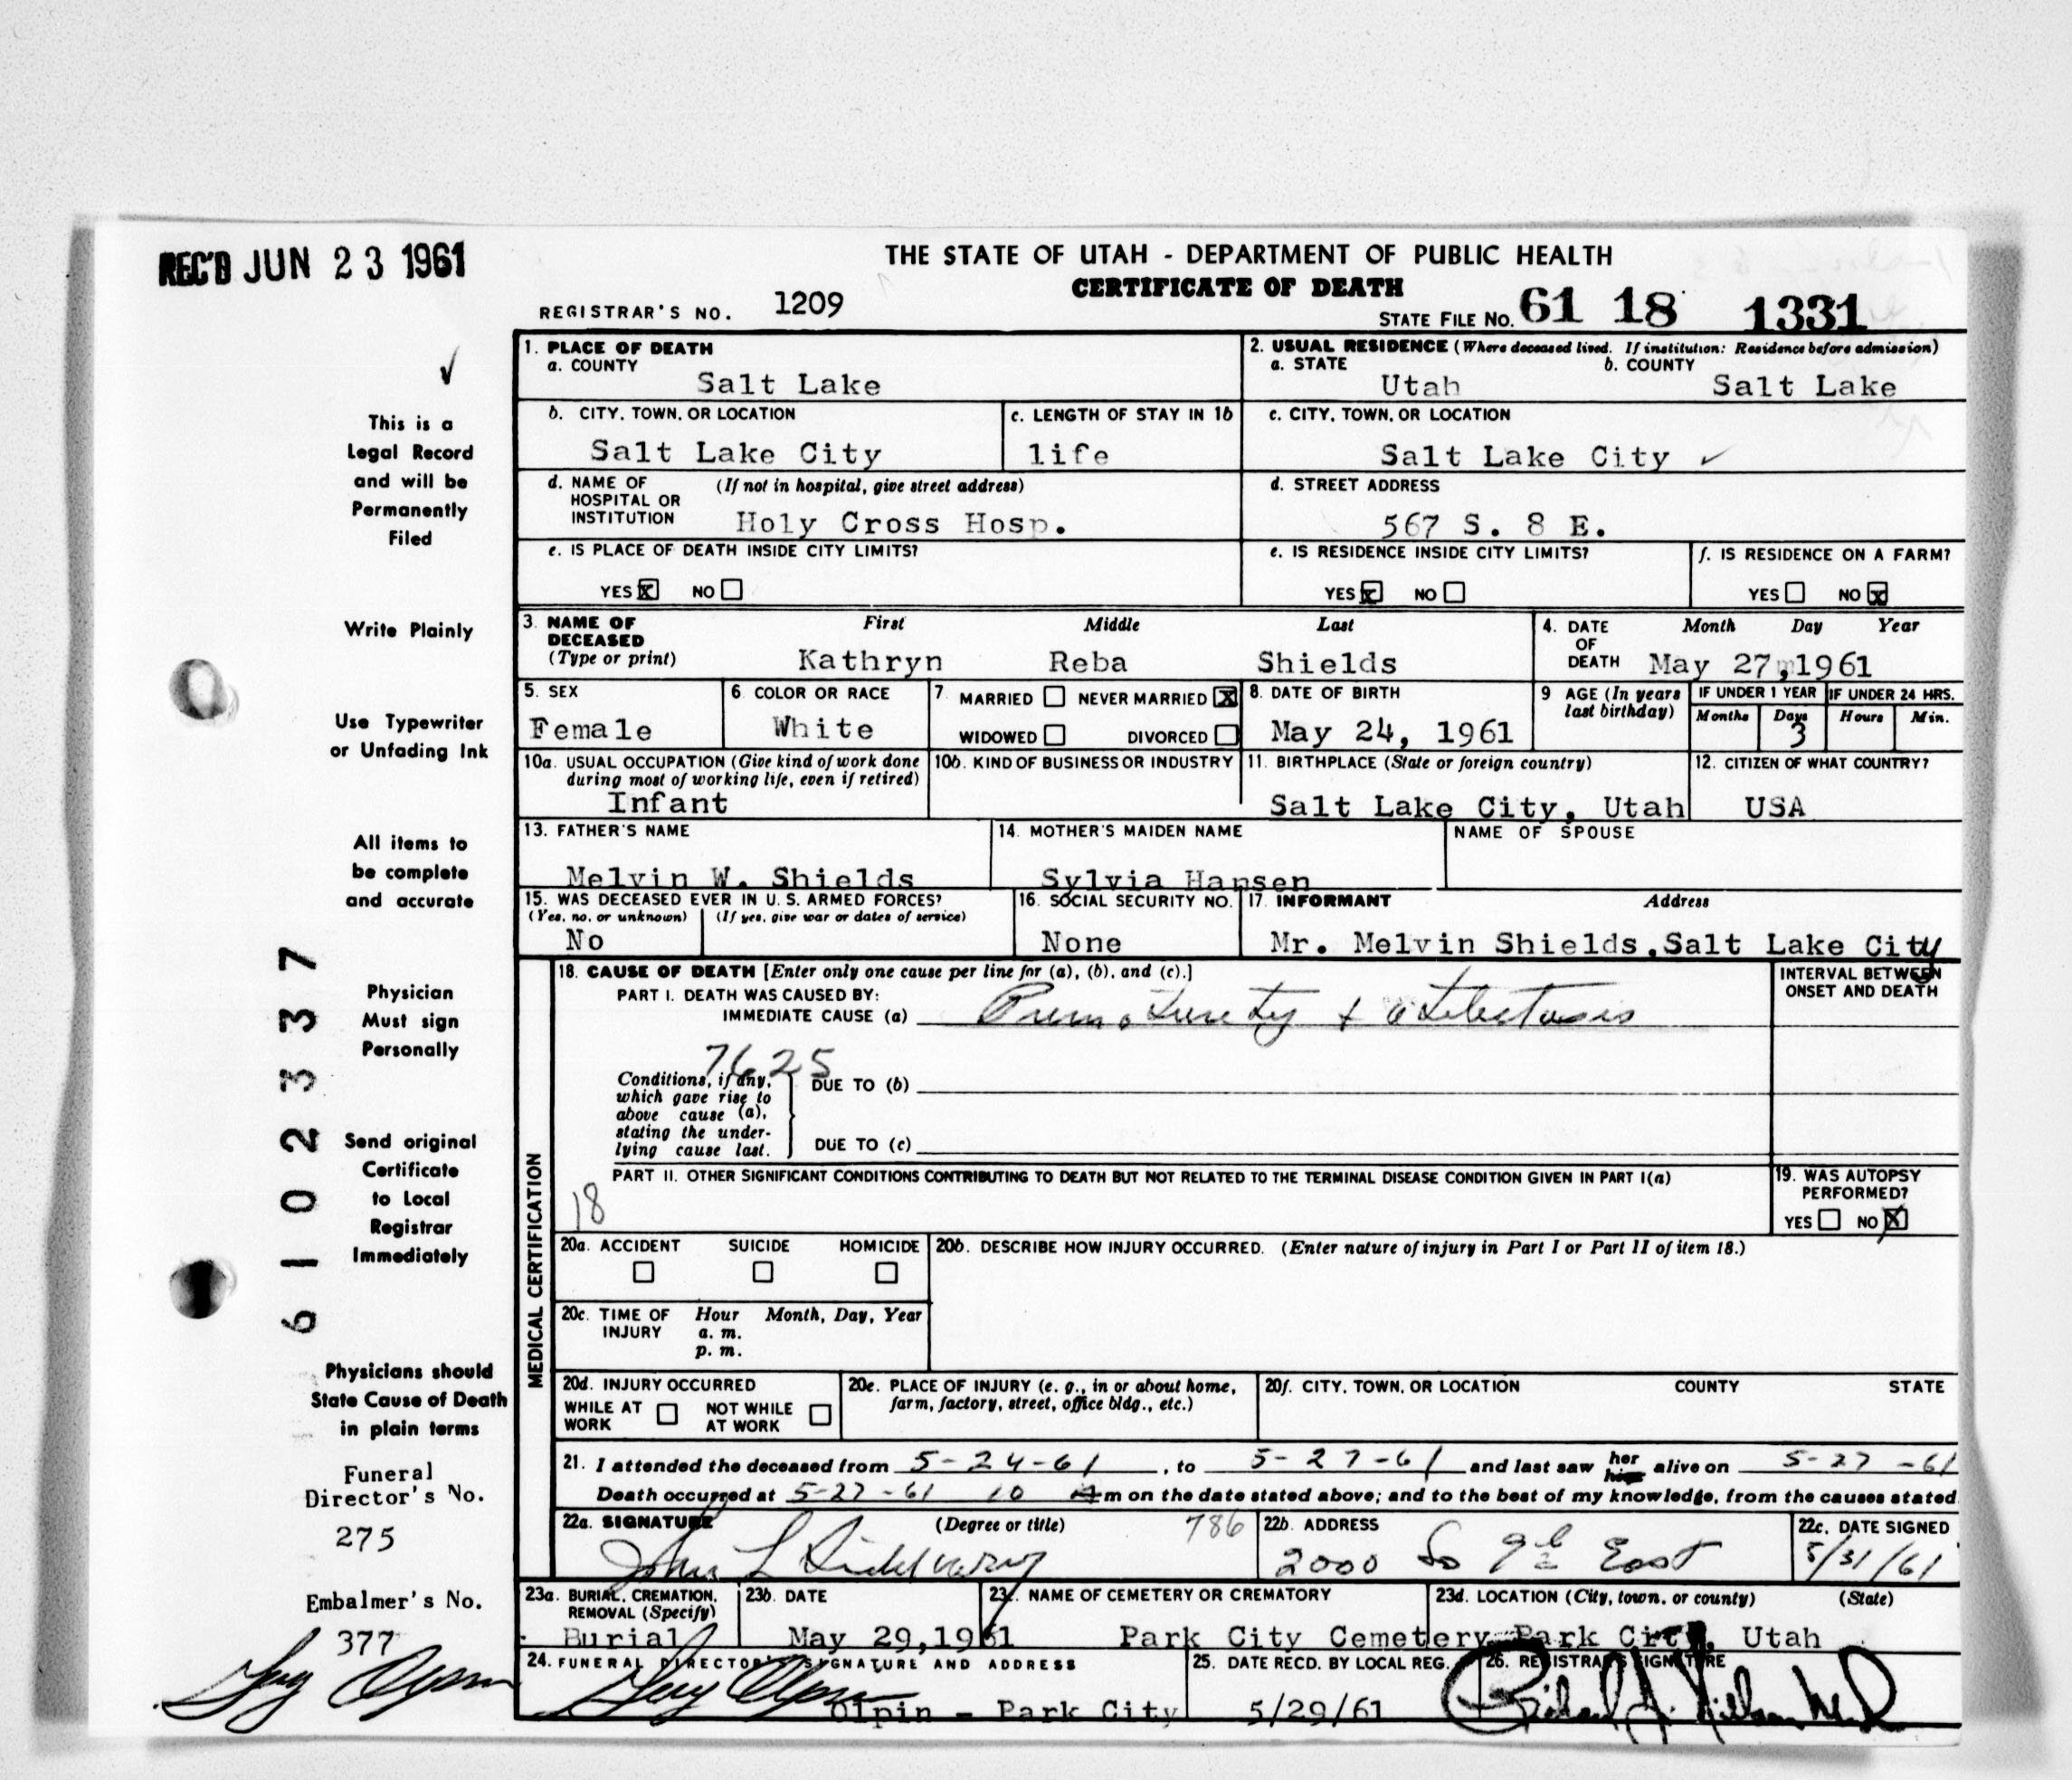 REC'D JUN 23 1961
THE STATE OF UTAH - DEPARTMENT OF PUBLIC HEALTH
CERTIFICATE OF DEATH
REGISTRAR'S NO. 1209
STATE FILE NO. 61 18 1331
This is a
Legal Record
and will be
Permanently
Filed
Write Plainly
Use Typewriter
or Unfading Ink
All items to
be complete
and accurate
Physician
Must sign
Personally
Send original
Certificate
to Local
Registrar
Immediately
Physicians should
State Cause of Death
in plain terms
Funeral
Director's No.
275
Embalmer's No.
377
6102337
1. PLACE OF DEATH
a. COUNTY
Salt Lake
2. USUAL RESIDENCE (Where deceased lived. If institution: Residence before admission)
a. STATE b. COUNTY
Utah Salt Lake
b. CITY, TOWN, OR LOCATION
Salt Lake City
c. LENGTH OF STAY IN 1b
life
c. CITY, TOWN, OR LOCATION
Salt Lake City ✓
d. NAME OF (If not in hospital, give street address)
HOSPITAL OR
INSTITUTION Holy Cross Hosp.
d. STREET ADDRESS
567 S. 8 E.
e. IS PLACE OF DEATH INSIDE CITY LIMITS?
YES X NO
e. IS RESIDENCE INSIDE CITY LIMITS?
YES X NO
f. IS RESIDENCE ON A FARM?
YES NO X
3. NAME OF First Middle Last
DECEASED
(Type or print) Kathryn Reba Shields
4. DATE Month Day Year
OF
DEATH May 27,1961
5. SEX
Female
6. COLOR OR RACE
White
7. MARRIED NEVER MARRIED X
WIDOWED DIVORCED
8. DATE OF BIRTH
May 24, 1961
9 AGE (In years
last birthday)
IF UNDER 1 YEAR
Months Days
3
IF UNDER 24 HRS.
Hours Min.
10a. USUAL OCCUPATION (Give kind of work done
during most of working life, even if retired)
Infant
10b. KIND OF BUSINESS OR INDUSTRY
11. BIRTHPLACE (State or foreign country)
Salt Lake City, Utah
12. CITIZEN OF WHAT COUNTRY?
USA
13. FATHER'S NAME
Melvin W. Shields
14. MOTHER'S MAIDEN NAME
Sylvia Hansen
NAME OF SPOUSE
15. WAS DECEASED EVER IN U.S. ARMED FORCES?
(Yes, no, or unknown) (If yes, give war or dates of service)
No
16. SOCIAL SECURITY NO.
None
17. INFORMANT Address
Mr. Melvin Shields,Salt Lake City
MEDICAL CERTIFICATION
18. CAUSE OF DEATH [Enter only one cause per line for (a), (b), and (c).]
PART I. DEATH WAS CAUSED BY:
IMMEDIATE CAUSE (a) Prematurety + atelectasis
INTERVAL BETWEEN
ONSET AND DEATH
7625
Conditions, if any,
which gave rise to
above cause (a),
stating the under-
lying cause last.
DUE TO (b)
DUE TO (c)
PART II. OTHER SIGNIFICANT CONDITIONS CONTRIBUTING TO DEATH BUT NOT RELATED TO THE TERMINAL DISEASE CONDITION GIVEN IN PART I(a)
18
19. WAS AUTOPSY
PERFORMED?
YES NO X
20a. ACCIDENT SUICIDE HOMICIDE
20b. DESCRIBE HOW INJURY OCCURRED. (Enter nature of injury in Part I or Part II of item 18.)
20c. TIME OF Hour Month, Day, Year
INJURY a. m.
p. m.
20d. INJURY OCCURRED
WHILE AT NOT WHILE
WORK AT WORK
20e. PLACE OF INJURY (e. g., in or about home,
farm, factory, street, office bldg., etc.)
20f. CITY, TOWN, OR LOCATION COUNTY STATE
21. I attended the deceased from 5-24-61, to 5-27-61 and last saw her him alive on 5-27-61
Death occurred at 5-27-61 10 Am on the date stated above; and to the best of my knowledge, from the causes stated
22a. SIGNATURE (Degree or title) 786
John L
22b. ADDRESS
2000 So 9th East
22c. DATE SIGNED
5/31/61
23a. BURIAL, CREMATION,
REMOVAL (Specify)
Burial
23b. DATE
May 29,1961
23c. NAME OF CEMETERY OR CREMATORY
Park City Cemetery
23d. LOCATION (City, town, or county) (State)
Park City, Utah
24. FUNERAL DIRECTOR'S SIGNATURE AND ADDRESS
Olpin - Park City
25. DATE RECD. BY LOCAL REG.
5/29/61
26. REGISTRAR'S SIGNATURE